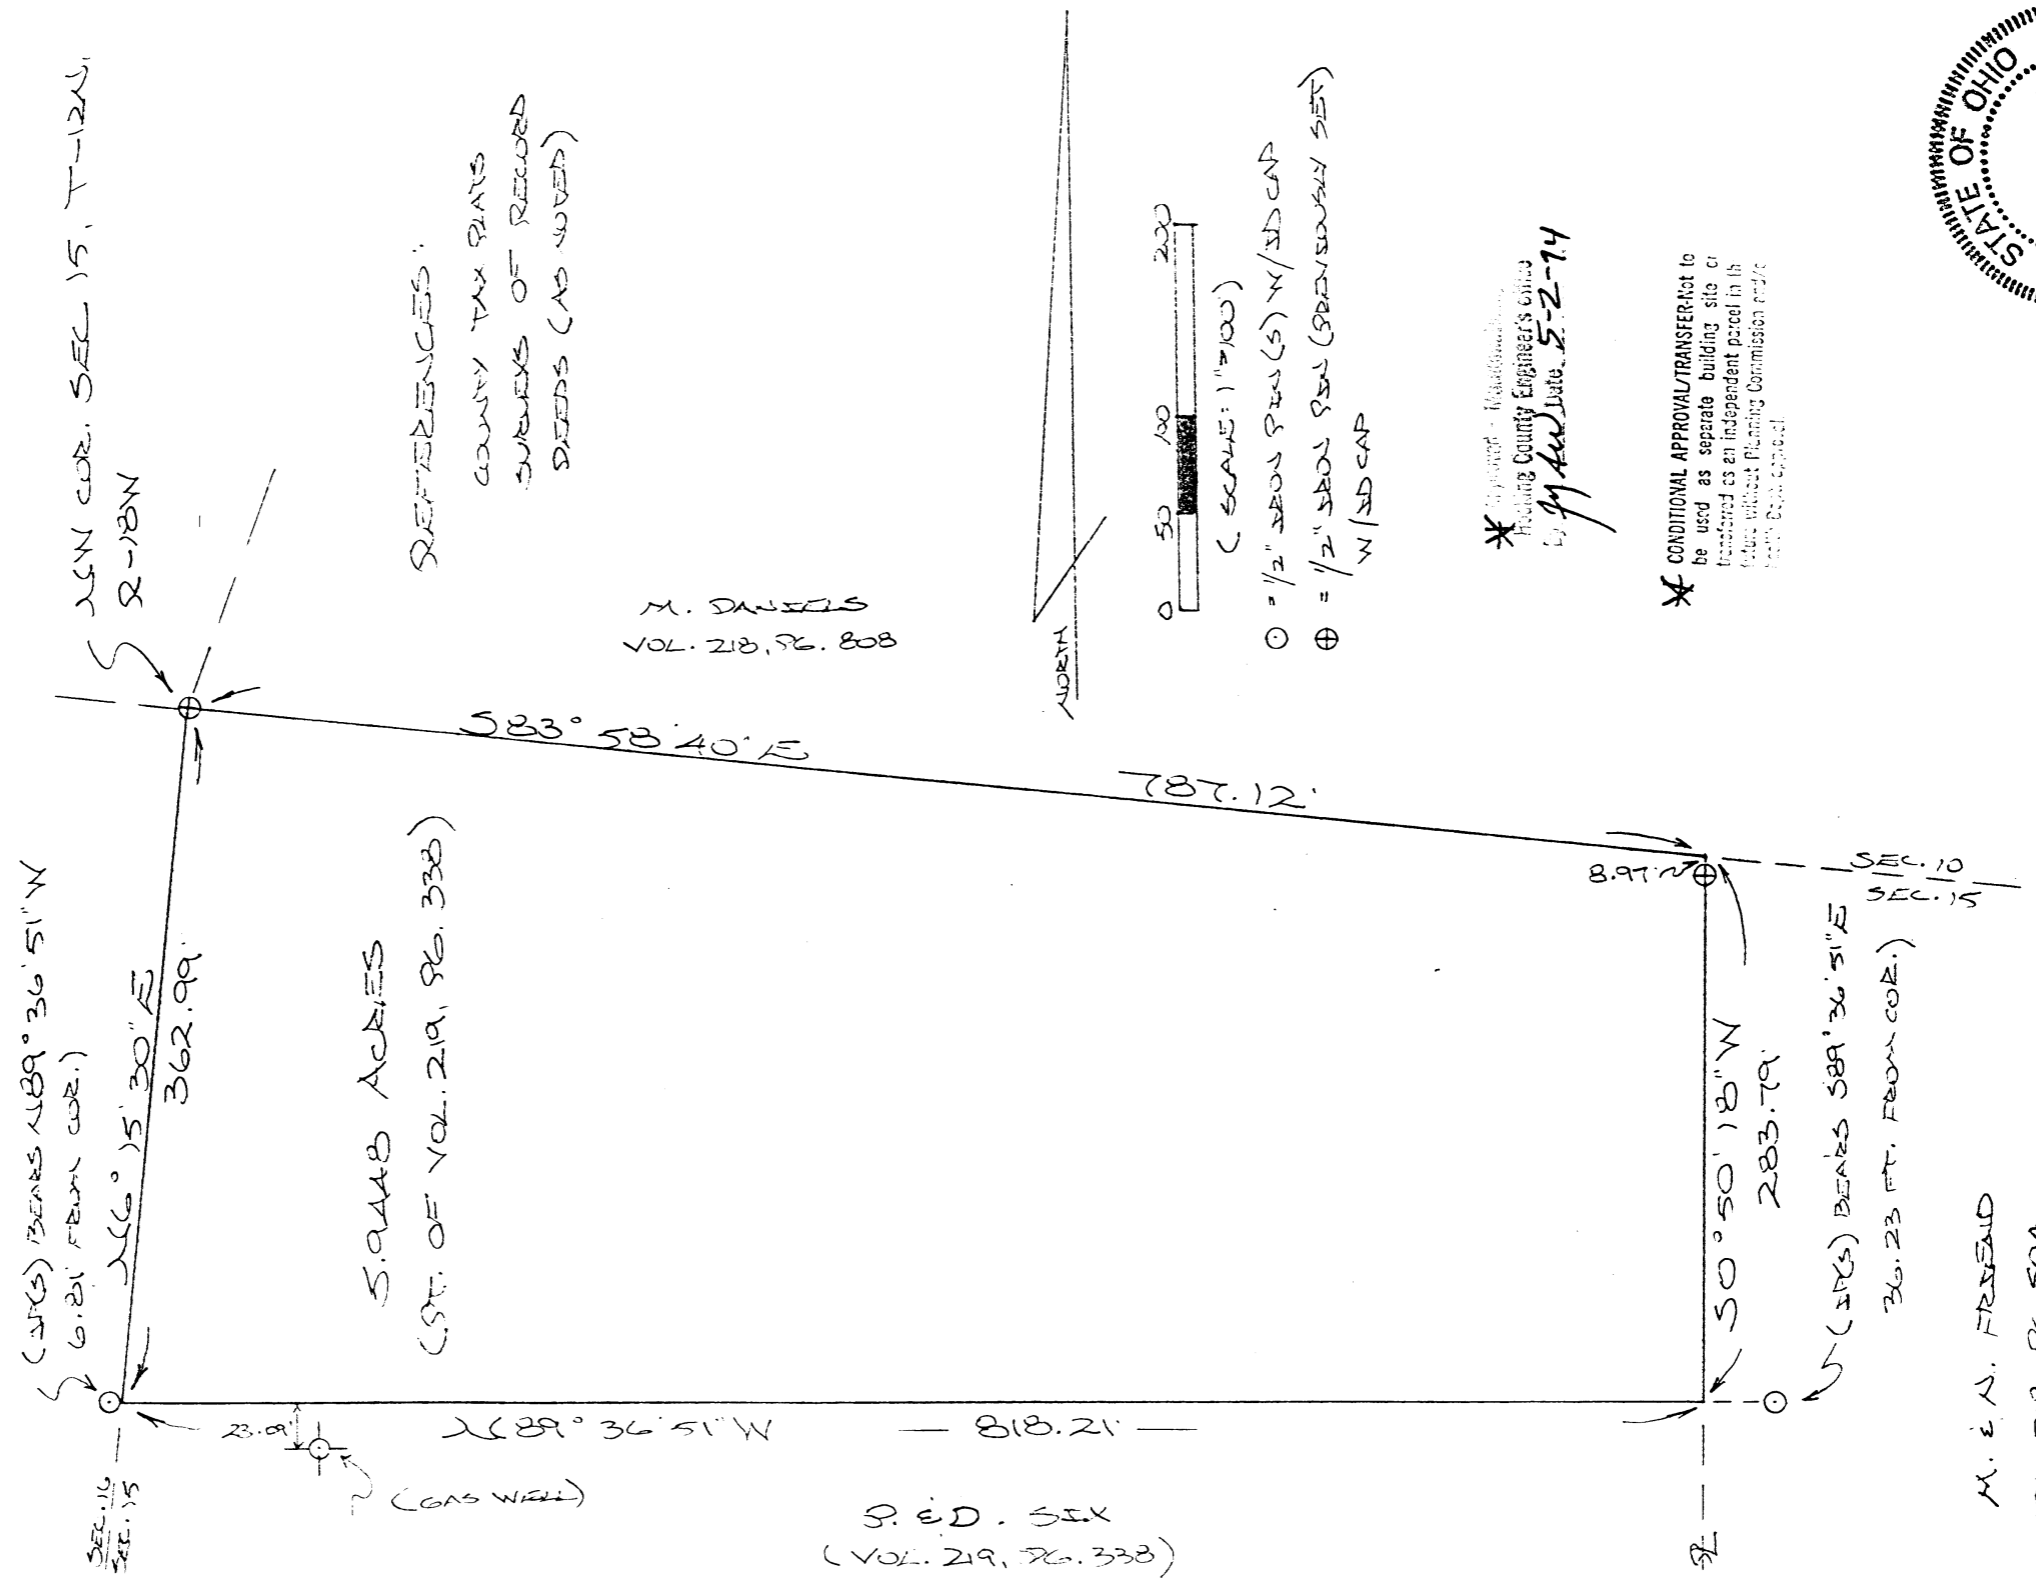 NW COR. SEC 15, T-12N,
R-18W
REFERENCES:
COUNTY TAX PLATS
SURVEYS OF RECORD
DEEDS (AS NOTED)
M. DANIELS
VOL. 218, PG. 808
NORTH
0 50 100 200
(SCALE: 1"=100')
⊙ = 1/2" IRON PIN (S) W/ID CAP
⊕ = 1/2" IRON PIN (PREVIOUSLY SET)
W/ID CAP
Hocking County Engineer's office
By Date 5-2-94
* CONDITIONAL APPROVAL/TRANSFER-Not to
be used as separate building site or
transferred as an independent parcel in th
future without Planning Commission and/c
STATE OF OHIO
S83° 58' 40" E
787.12'
8.97'
SEC. 10
SEC. 15
(IPS) BEARS N89° 36' 51" W
6.81' FROM COR.)
N6° 15' 30" E
362.99'
5.9448 ACRES
(PT. OF VOL. 219, PG. 338)
S0° 50' 18" W
283.79'
(IPS) BEARS S89° 36' 51" E
36.23 FT. FROM COR.)
M. & N. FRIEND
23.09'
N89° 36' 51" W — 818.21' —
(GAS WELL)
SEC. 16
SEC. 15
P. & D. SIX
(VOL. 219, PG. 338)
PL